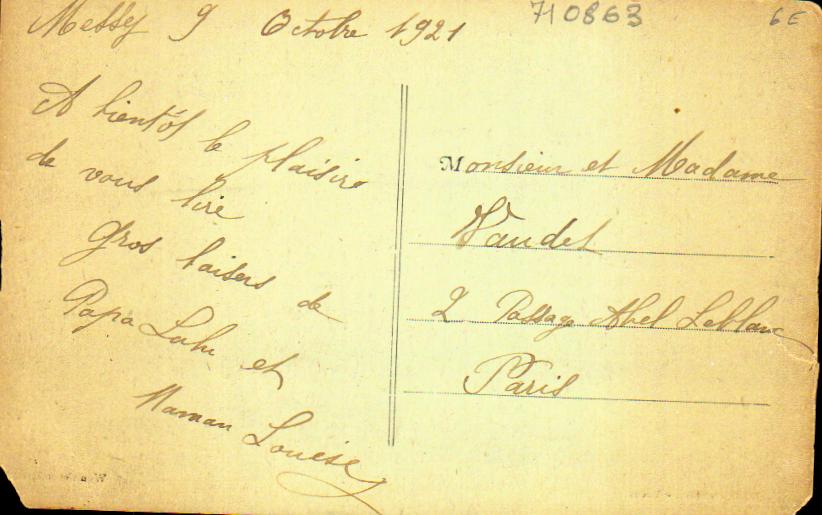 Messy 9 Octobre 1921
710863
6E
A bientôt le plaisir
de vous lire
Gros baisers de
Papa Lulu et
Maman Louise
Monsieur et Madame
Vaudet
2 Passage Abel Leblanc
Paris